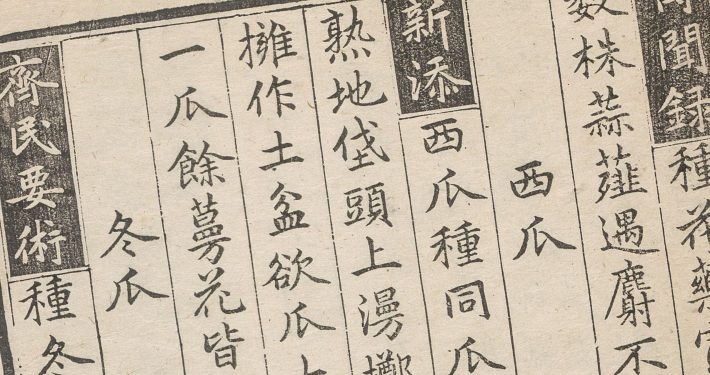 聞録種花藥
數株蒜薤遇麝不
西瓜
新添西瓜種同瓜
熟地垡頭上漫擲
擁作土盆欲瓜
一瓜餘蔓花皆
冬瓜
齊民要術種冬